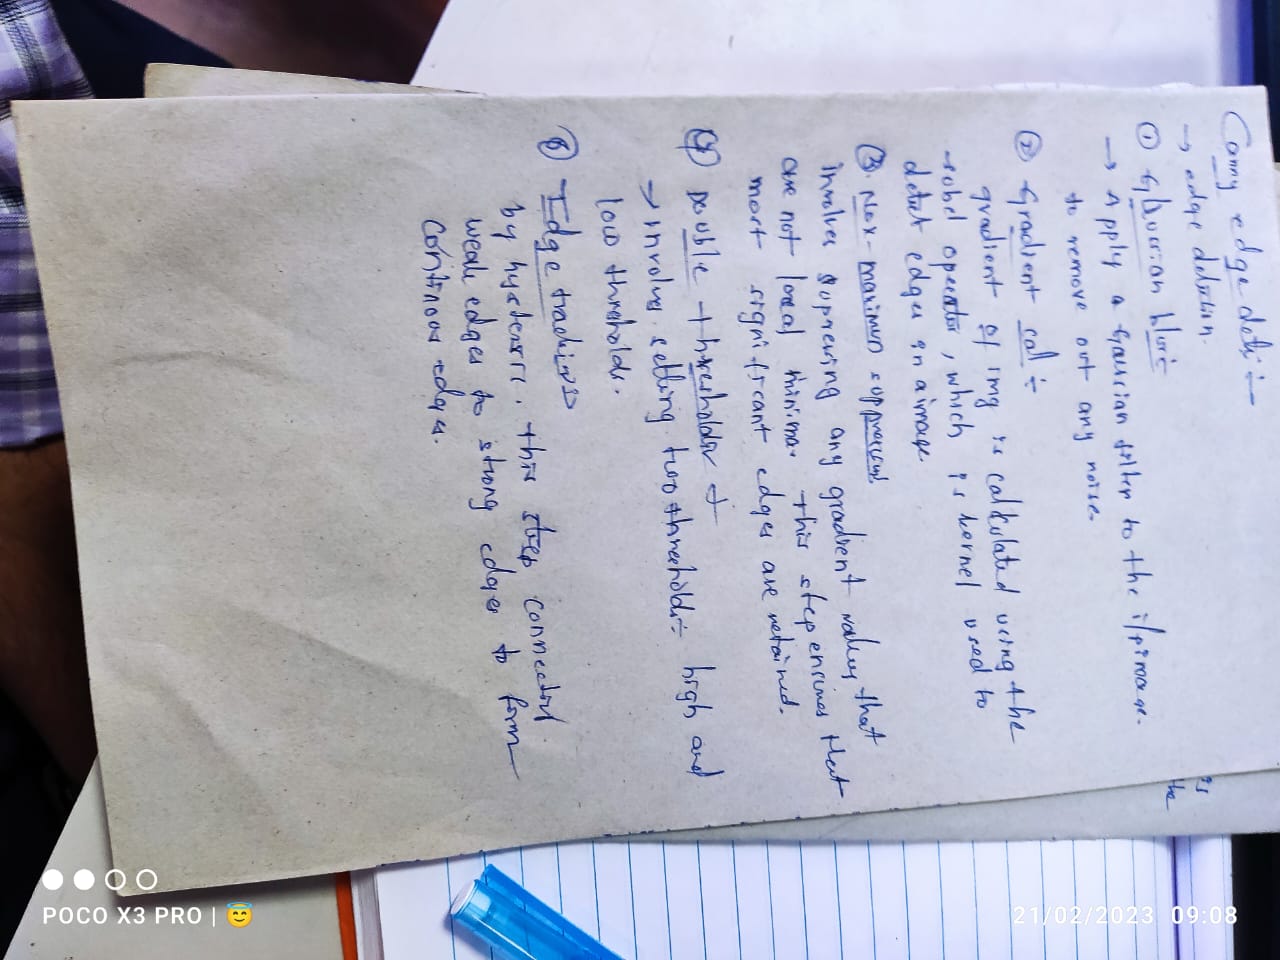 Canny edge detc :-
→ edge detection.
① Gaussian blur :-
→ Apply a Gaussian filter to the i/p image.
to remove out any noise.
② Gradient cal :-
gradient of img is calculated using the
→ sobel operator, which is kernel used to
detect edges in a image
③. Non-maximum suppression
involves supressing any gradient values that
are not local minima. this step ensures that
most significant edges are retained.
④ Double thresholding
→ involves setting two thresholds :- high and
low thresholds.
⑤ Edge tracking
by hysteresis. this step connects
weak edges to strong edges to form
continous edges.
is
the
POCO X3 PRO |
21/02/2023 09:08